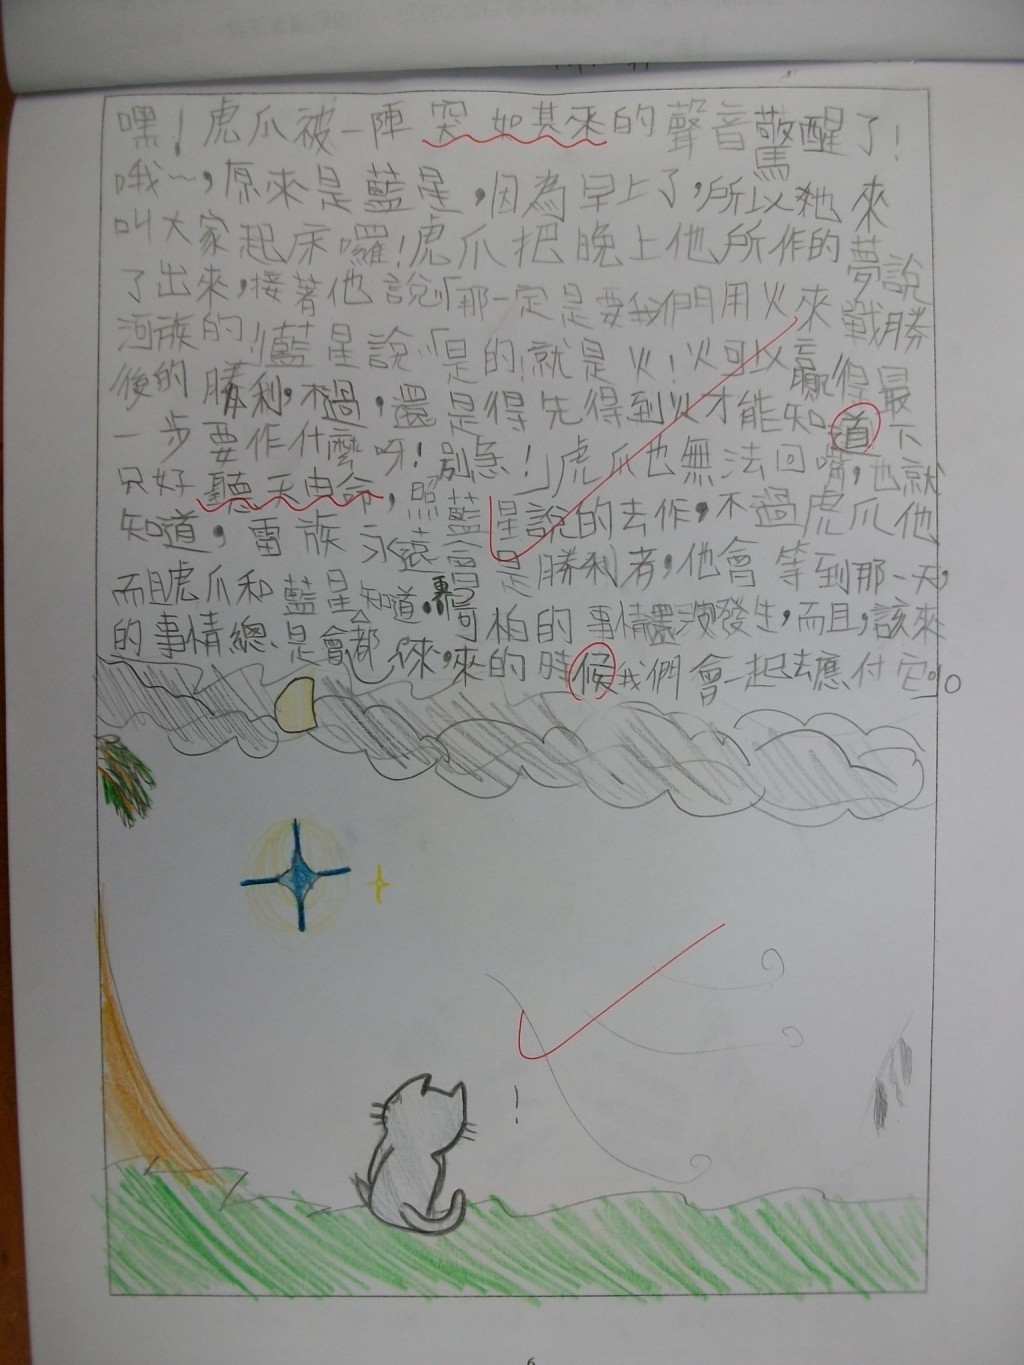 嘿！虎爪被一陣突如其來的聲音驚醒了！
哦~，原來是藍星，因為早上了，所以她來
叫大家起床囉！虎爪把晚上他所作的夢說
了出來，接著他說「那一定是要我們用火來戰勝
河族的！」藍星說「是的！就是火！火可以贏得最
後的勝利，不過，還是得先得到火才能知道下
一步要作什麼呀！別急！」虎爪也無法回嘴，也就
只好聽天由命，照藍星說的去作，不過虎爪他
知道，雷族永遠會是勝利者，他會等到那一天，
而且虎爪和藍星知道，更可怕的事情還沒發生，而且，該來
的事情總是會都來，來的時候我們會一起去應付它。10
！
6